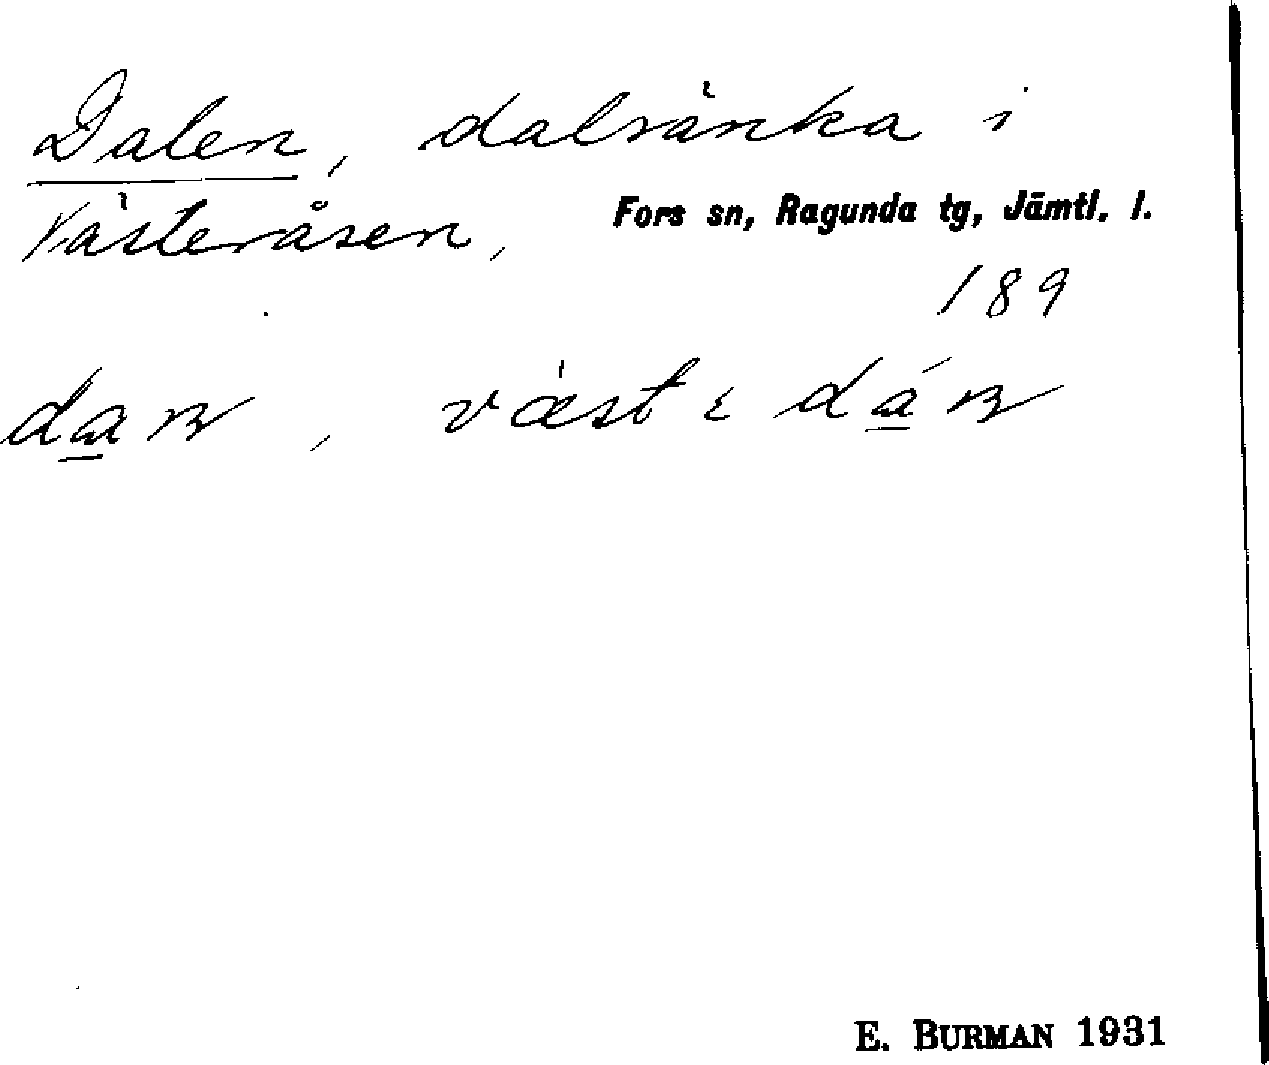 Dalen, dalsänka i
Västeråsen, Fors sn, Ragunda tg, Jämtl. l.
189
E. BURMAN 1931